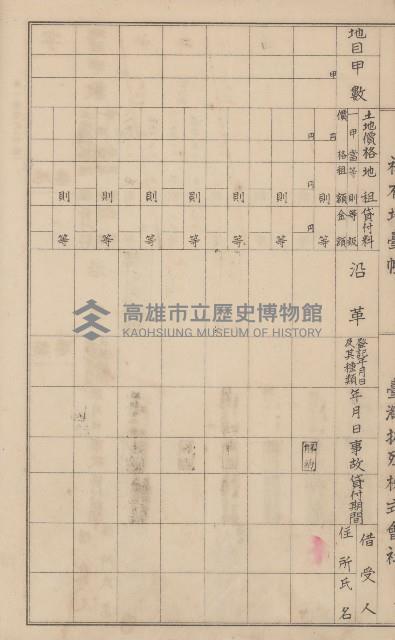 社有地臺帳
臺灣拓殖株式會社
地目甲數
甲
土地價格
一甲當
價格
地租
等則
租額
貸付料
等級
金額
吉
円
円
円
則
則
則
則
則
則
則
等
等
等
等
等
等
等
沿革
登記年月日
及其種類
年月日
事故
貸付期間
借受人
住所氏名
高雄市立歷史博物館
KAOHSIUNG MUSEUM OF HISTORY